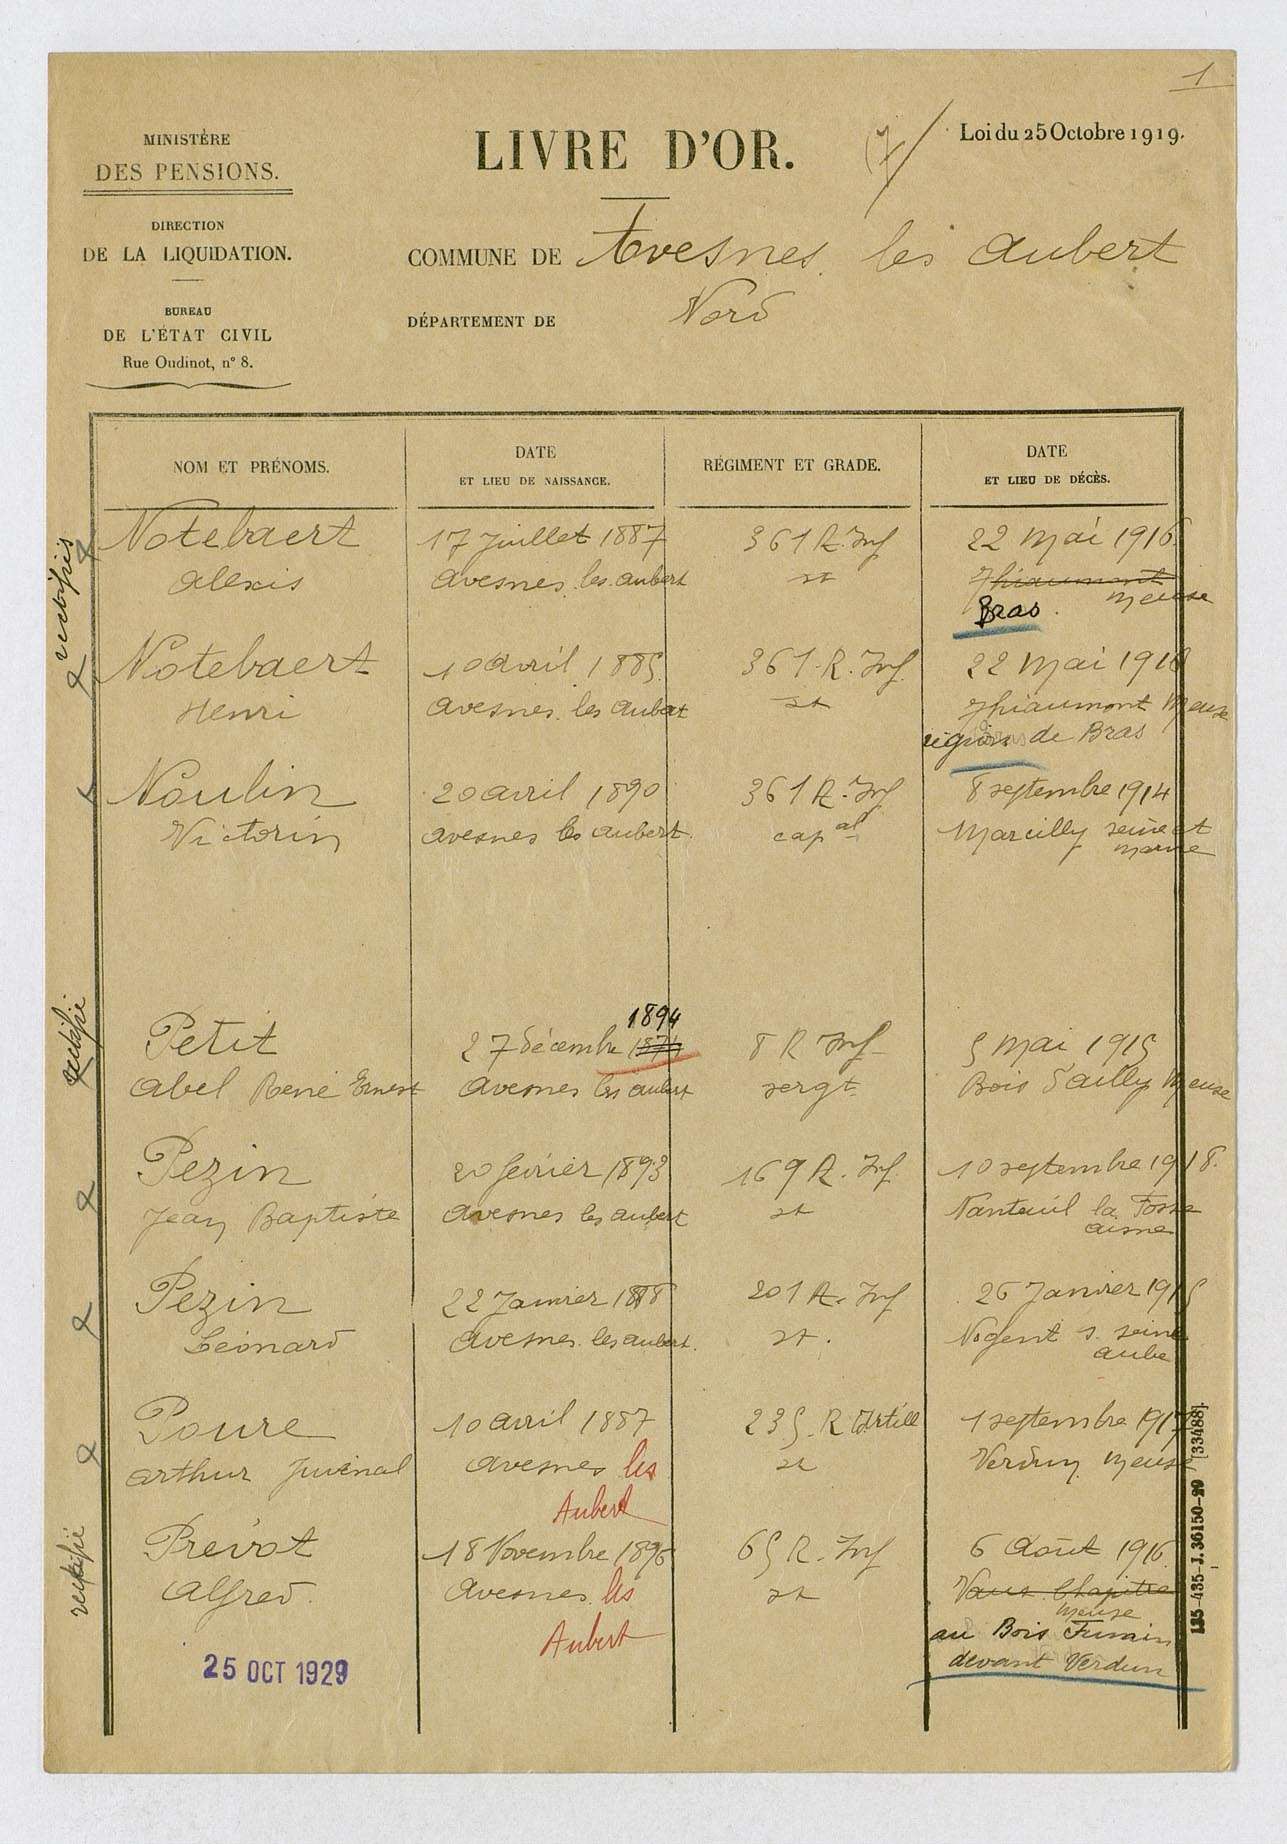 1
MINISTÈRE
DES PENSIONS.
DIRECTION
DE LA LIQUIDATION.
BUREAU
DE L'ÉTAT CIVIL
Rue Oudinot, n° 8.
LIVRE D'OR.
(7)
Loi du 25 Octobre 1919.
COMMUNE DE Avesnes les aubert
DÉPARTEMENT DE Nord
NOM ET PRÉNOMS.
DATE
ET LIEU DE NAISSANCE.
RÉGIMENT ET GRADE.
DATE
ET LIEU DE DÉCÈS.
rectifiés
Notebaert 17 Juillet 1887 361 R. Inf 22 Mai 1916
alexis avesnes les aubert st Thiaumont Meuse
Bras.
Notebaert 10 avril 1885 361 R. Inf. 22 Mai 1916
Henri avesnes les aubert st Thiaumont Meuse
région de Bras
Noulin 20 avril 1890 361 R. Inf 8 septembre 1914
Victorin avesnes les aubert cap al Marcilly seine et
marne
rectifié
1894
Petit 27 décembre 1871 8 R Inf 5 Mai 1915
abel René Ernest avesnes les aubert sergt Bois d'ailly Meuse
Pezin 20 février 1893 169 R. Inf. 10 septembre 1918.
Jean Baptiste avesnes les aubert st Nanteuil la Fosse
aisne
Pezin 22 Janvier 1888 201 R. Inf 26 Janvier 1915
Léonard avesnes les aubert. st. Nogent s. seine
aube
Poure 10 avril 1887 235 R Artill 1 septembre 1917
arthur Juvénal avesnes les st Verdun Meuse
Aubert
rectifié
Prévot 18 Novembre 1896 65 R. Inf 6 Août 1916
alfred. avesnes les st Vaux Chapitre
Meuse
Aubert au Bois Fumin
devant Verdun
25 OCT 1929
135-435-J. 36150-20 [33488]